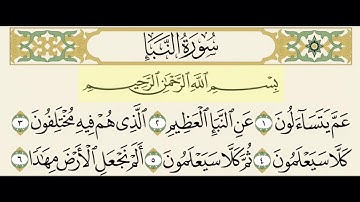 سُورَةُ النَّبَإِ
بِسْمِ اللَّهِ الرَّحْمَٰنِ الرَّحِيمِ
عَمَّ يَتَسَآءَلُونَ ١ عَنِ ٱلنَّبَإِ ٱلْعَظِيمِ ٢ ٱلَّذِى هُمْ فِيهِ مُخْتَلِفُونَ ٣
كَلَّا سَيَعْلَمُونَ ٤ ثُمَّ كَلَّا سَيَعْلَمُونَ ٥ أَلَمْ نَجْعَلِ ٱلْأَرْضَ مِهَٰدًا ٦